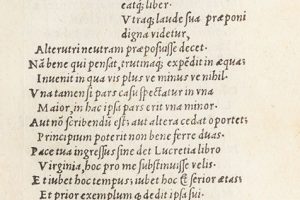 eatq; liber.
Vtraq; laude sua præponi
digna videtur,
Alterutri neutram præposuisse decet.
Nã bene qui pensat, trutinaq; expẽdit in æqua:
Inuenit in qua vis plus ve minus ve nihil.
Vna tamen si pars casu spectatur in vna
Maior, in hac ipsa pars erit vna minor.
Aut nõ scribendũ est: aut altera cedat oportet:
Principium poterit non bene ferre duas.
Pace tua ingressus sine det Lucretia libro
Virginia, hoc pro me substinuisse velis.
Et iubet hoc tempus; iubet hoc & serior ætas;
Et prior exemplum q; dedit ipsa sui.